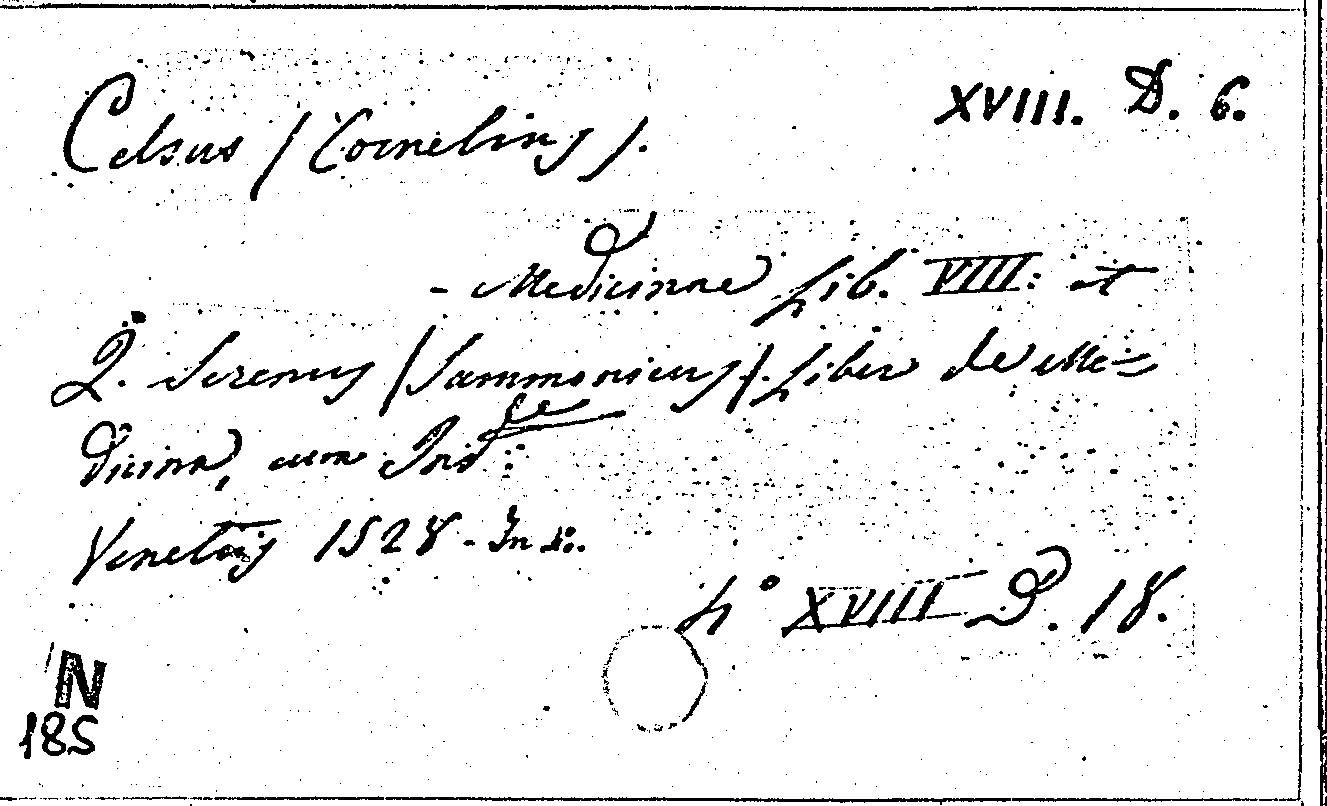 Celsus (Cornelius).
XVIII. D. 6.
- Medicinae Lib. VIII: et
Q. Serenus (Sammonicus). Liber de Me=
dicina, cum Ind:ce
Venetiis 1528 - In 4o.
4° XVIII D. 18.
N
185